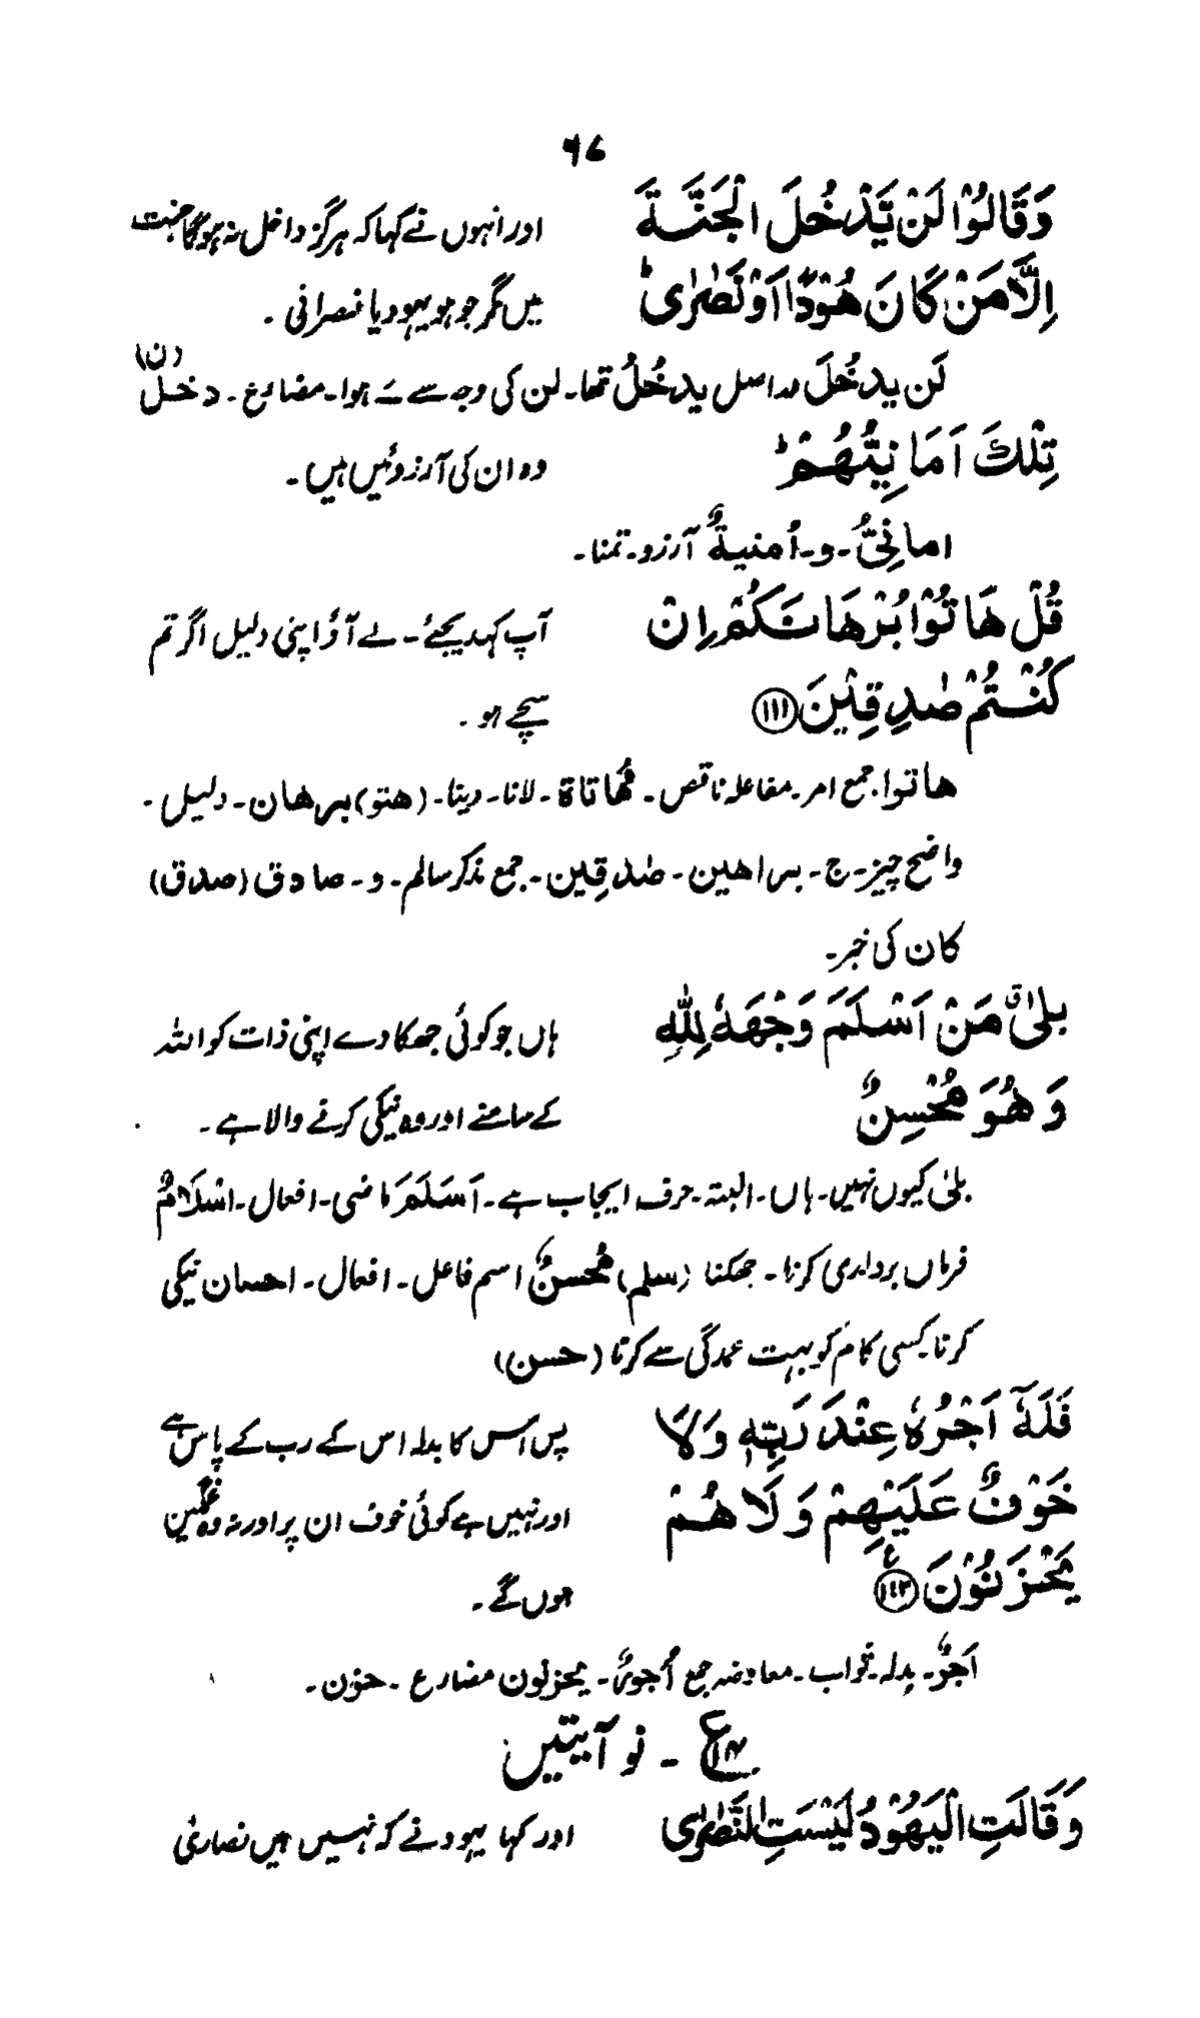 ۹۷
وَقَالُوْا لَنْ يَّدْخُلَ الْجَنَّةَ اور انہوں نے کہا کہ ہرگز داخل نہ ہوگا جنت
اِلَّا مَنْ كَانَ هُوْدًا اَوْ نَصٰرٰى ؕ میں مگر جو ہو یہود یا نصرانی ۔
لَن يدخُلَ دراصل يدخُلُ تھا۔ لن کی وجہ سے ـَ ہوا۔ مضارع ۔ دخل (ن)
تِلْكَ اَمَانِيُّهُمْ ؕ وہ ان کی آرزوئیں ہیں ۔
امانِیُّ ۔ و ۔ اُمنیةٌ آرزو ۔ تمنا ۔
قُلْ هَاتُوْا بُرْهَانَكُمْ اِنْ آپ کہدیجئے ۔ لے آؤ اپنی دلیل اگر تم
كُنْتُمْ صٰدِقِيْنَ ﴿۱۱۱﴾ سچے ہو ۔
هاتوا ۔ جمع امر ۔ مفاعلہ ناقص ۔ مُهاتاة ۔ لانا ۔ دینا ۔ (هتو) برهان ۔ دلیل ۔
واضح چیز ۔ ج ۔ براهین ۔ صٰدقِین ۔ جمع مذکر سالم ۔ و ۔ صادق (صدق)
کان کی خبر ۔
بلٰى ۗ مَنْ اَسْلَمَ وَجْهَهٗ لِلّٰهِ ہاں جو کوئی جھکا دے اپنی ذات کو اللہ
وَهُوَ مُحْسِنٌ کے سامنے اور وہ نیکی کرنے والا ہے ۔
بلیٰ کیوں نہیں ۔ ہاں ۔ البتہ ۔ حرف ایجاب ہے ۔ اَسَلَمَ ماضی ۔ افعال ۔ اسْلَامٌ
فرماں برداری کرنا ۔ جھکنا (سلم) مُحسنٌ اسم فاعل ۔ افعال ۔ احسان نیکی
کرنا ۔ کسی کام کو بہت عمدگی سے کرنا (حسن)
فَلَهٗٓ اَجْرُهٗ عِنْدَ رَبِّهٖ وَلَا پس اس کا بدلہ اس کے رب کے پاس ہے
خَوْفٌ عَلَيْهِمْ وَلَا هُمْ اور نہیں ہے کوئی خوف ان پر اور نہ وہ غمگین
يَحْزَنُوْنَ ﴿۱۱۲﴾ ع ہوں گے ۔
اَجرٌ ۔ بدلہ ۔ ثواب ۔ معاوضہ جمع اُجورٌ ۔ یحزنون مضارع ۔ حزن ۔
ع ۱۴ ۔ نو آیتیں
وَقَالَتِ الْيَهُوْدُ لَيْسَتِ النَّصٰرٰى اور کہا یہود نے کہ نہیں ہیں نصاریٰ